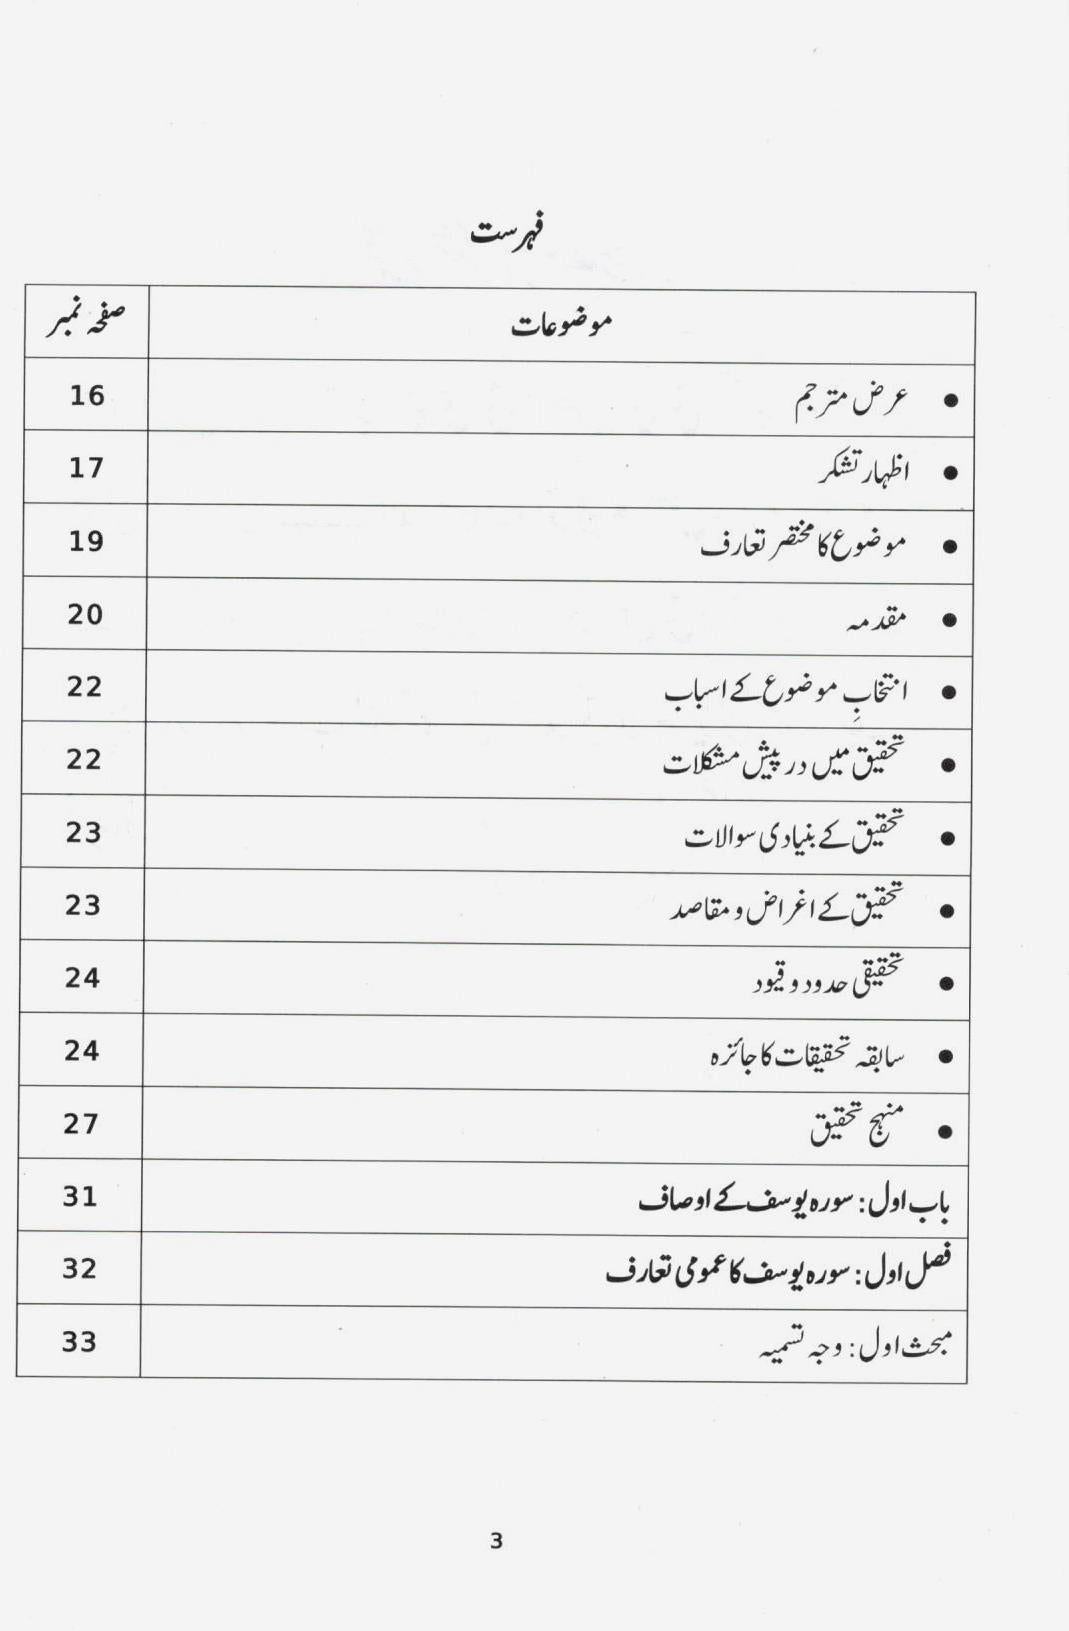 فہرست
موضوعات صفحہ نمبر
• عرض مترجم 16
• اظہار تشکر 17
• موضوع کا مختصر تعارف 19
• مقدمہ 20
• انتخابِ موضوع کے اسباب 22
• تحقیق میں درپیش مشکلات 22
• تحقیق کے بنیادی سوالات 23
• تحقیق کے اغراض و مقاصد 23
• تحقیقی حدود و قیود 24
• سابقہ تحقیقات کا جائزہ 24
• منہج تحقیق 27
باب اول: سورہ یوسف کے اوصاف 31
فصل اول: سورہ یوسف کا عمومی تعارف 32
مبحث اول: وجہ تسمیہ 33
3